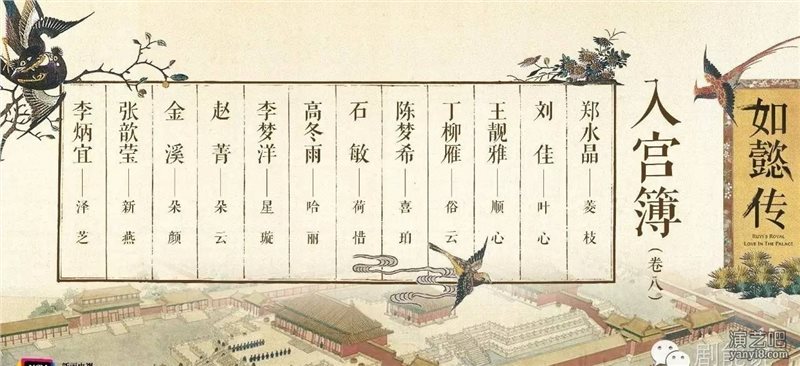 如懿传
RUYI'S ROYAL
LOVE IN THE PALACE
入宫簿(卷八)
郑水晶——菱枝
刘佳——叶心
王靓雅——顺心
丁柳雁——俗云
陈梦希——喜珀
石敏——荷惜
高冬雨——哈丽
李梦洋——星璇
赵菁——朵云
金溪——朵颜
张歆莹——新燕
李炳宜——泽芝
演艺吧
www.yanyi8.com